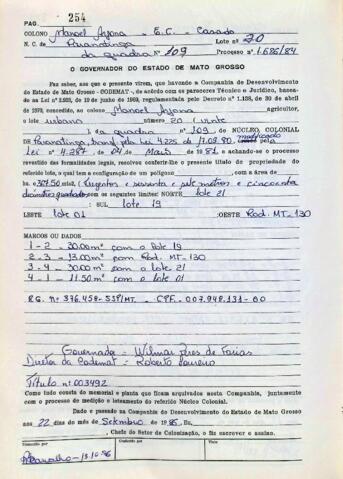 PAG. 254
COLONO Manoel Ajona - E.C. - Casado
N. C. de Paranatinga Lote nº 20
da quadra nº 109 PROCESSO nº 1.686/84
O GOVERNADOR DO ESTADO DE MATO GROSSO
Faz saber, aos que o presente virem, que havendo a Companhia de Desenvolvimento
do Estado de Mato Grosso -CODEMAT-, de acordo com os pareceres Técnico e Jurídico, baseado
na Lei nº de 19 de junho de 1969, regulamentada pelo Decreto nº 1.138, de 30 de abril
de 1970, concedido, ao colono Manoel Ajona agricultor,
o lote urbano número 20 (vinte
), da quadra nº 109, do NÚCLEO COLONIAL
DE Paranatinga, pela Lei 4.225 de modificado pela
Lei nº 4.287, de 04 de Maio de 1981, e achando-se o processo
revestido das formalidades legais, resolveu conferir-lhe o presente título de propriedade do
referido lote, o qual tem a configuração de um polígono com a área de
367.50 mts2, sessenta e sete metros e cinquenta
decímetros quadrados com os seguintes limites: NORTE lote 21
: SUL lote 19
LESTE lote 01 :OESTE Rod. MT-130
MARCOS OU DADOS
1 - 2 - 30.00m² com o lote 19
2 - 3 - 13.00m² com Rod. MT-130
3 - 4 - 30.00m² com o lote 21
4 - 1 - 11.50m² com o lote 01
RG. nº 376.458-SSP/MT. - CPF. 007.948.131-00
Governador - Wilmar Peres de Farias
Diretor da Codemat - Roberto Loureiro
Título nº 003492
Como tudo consta do memorial e planta que ficam arquivados nesta Companhia, juntamente
com o processo de medição e loteamento do referido Núcleo Colonial.
Dado e passado na Companhia do Desenvolvimento do Estado de Mato Grosso
aos 22 dias do mês de Setembro de 1986, Eu,
, Chefe do Setor de Colonização, o fiz escrever e assino.
Transcrito por
Conferido por
Visto
13.10.86